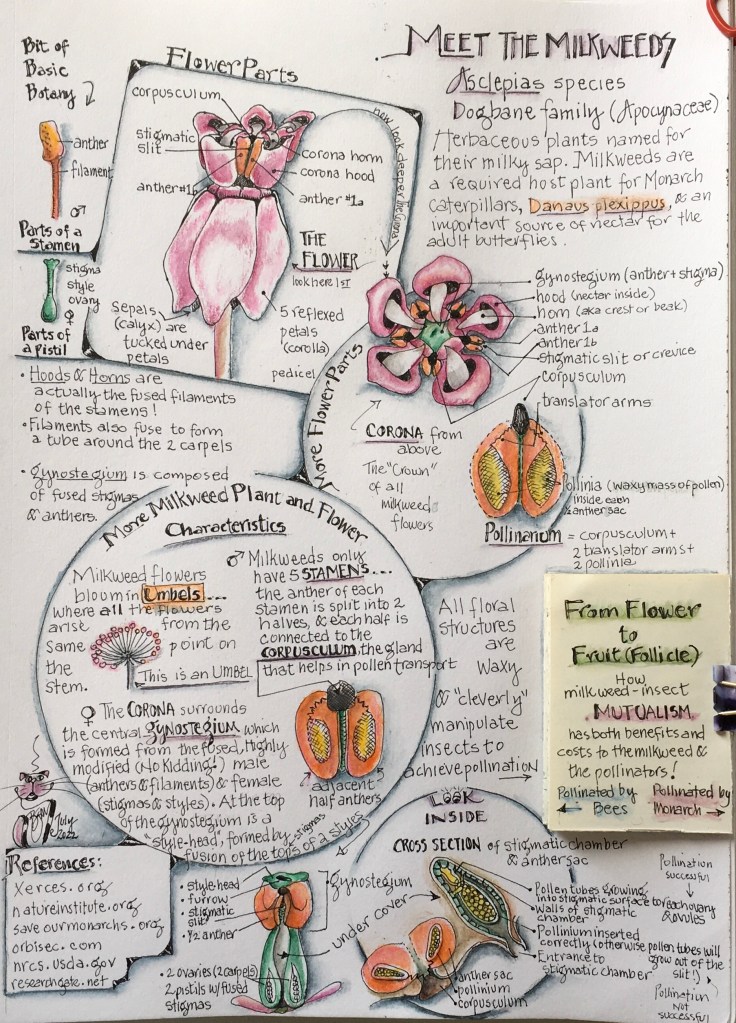 MEET THE MILKWEEDS
Asclepias species
Dogbane family (Apocynaceae)
Herbaceous plants named for
their milky sap. Milkweeds are
a required host plant for Monarch
caterpillars, Danaus plexippus, & an
important source of nectar for the
adult butterflies.
Bit of
Basic
Botany
anther
filament
♂
Parts of a
Stamen
stigma
style
ovary
♀
Parts of
a Pistil
Flower Parts
corpusculum
stigmatic
slit
anther #1b
corona horn
corona hood
anther #1a
THE
FLOWER
look here 1st
Sepals
(calyx) are
tucked under
petals
5 reflexed
petals
(corolla)
pedicel
now look deeper
• Hoods & Horns are
actually the fused filaments
of the stamens!
• Filaments also fuse to form
a tube around the 2 carpels
• gynostegium is composed
of fused stigmas
& anthers.
More Flower Parts
gynostegium (anther + stigma)
hood (nectar inside)
horn (aka crest or beak)
anther 1a
anther 1b
stigmatic slit or crevice
corpusculum
translator arms
CORONA from
above
The "Crown"
of all
milkweed
flowers
Pollinia (waxy mass of pollen)
inside each
½ anther sac
Pollinarium = corpusculum +
2 translator arms +
2 pollinia
More Milkweed Plant and Flower
Characteristics
Milkweed flowers
bloom in Umbels...
where all the flowers
arise from the
same point on
the
stem.
This is an UMBEL
♂ Milkweeds only
have 5 STAMENS...
the anther of each
stamen is split into 2
halves, & each half is
connected to the
CORPUSCULUM, the gland
that helps in pollen transport
♀ The CORONA surrounds
the central gynostegium which
is formed from the fused, Highly
modified (No Kidding!) male
(anthers & filaments) & female
(stigmas & styles). At the top
of the gynostegium is a
"style-head", formed by
fusion of the tops of 2 styles
+stigmas
adjacent
half anthers
All floral
structures
are
waxy
& "cleverly"
manipulate
insects to
achieve pollination
From Flower
to
Fruit (Follicle)
How
milkweed-insect
MUTUALISM
has both benefits and
costs to the milkweed &
the pollinators!
Pollinated by
Bees
Pollinated by
Monarch
July
2022
References:
xerces.org
natureinstitute.org
saveourmonarchs.org
orbisec.com
nrcs.usda.gov
researchgate.net
• style head
• furrow
• stigmatic
slit
• ½ anther
gynostegium
under cover
• 2 ovaries (2 carpels)
2 pistils w/fused
stigmas
LOOK
INSIDE
CROSS SECTION of stigmatic chamber
& anther sac
Pollination
successful
Pollen tubes growing
into stigmatic surface to reach ovary
& ovules
Walls of stigmatic
chamber
Pollinium inserted
correctly (otherwise pollen tubes will
grow out of the
slit!)
Entrance to
stigmatic chamber
Pollination
Not
successful
anther sac
pollinium
corpusculum